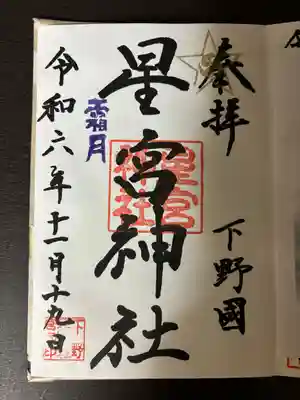 奉拝
下野國
星宮神社
星宮
神社
霜月
令和六年十一月十九日